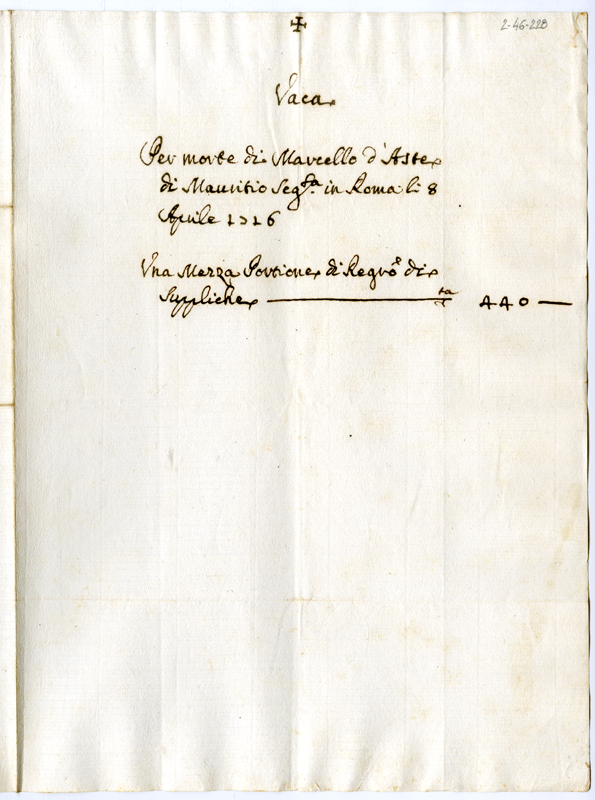 ✠
2-46-228
Vaca
Per morte di Marcello d'Aste
di Mauritio Seg.ta in Roma li 8
Aprile 1716
Una Mezza Portione di Regro di
Suppliche ta 440